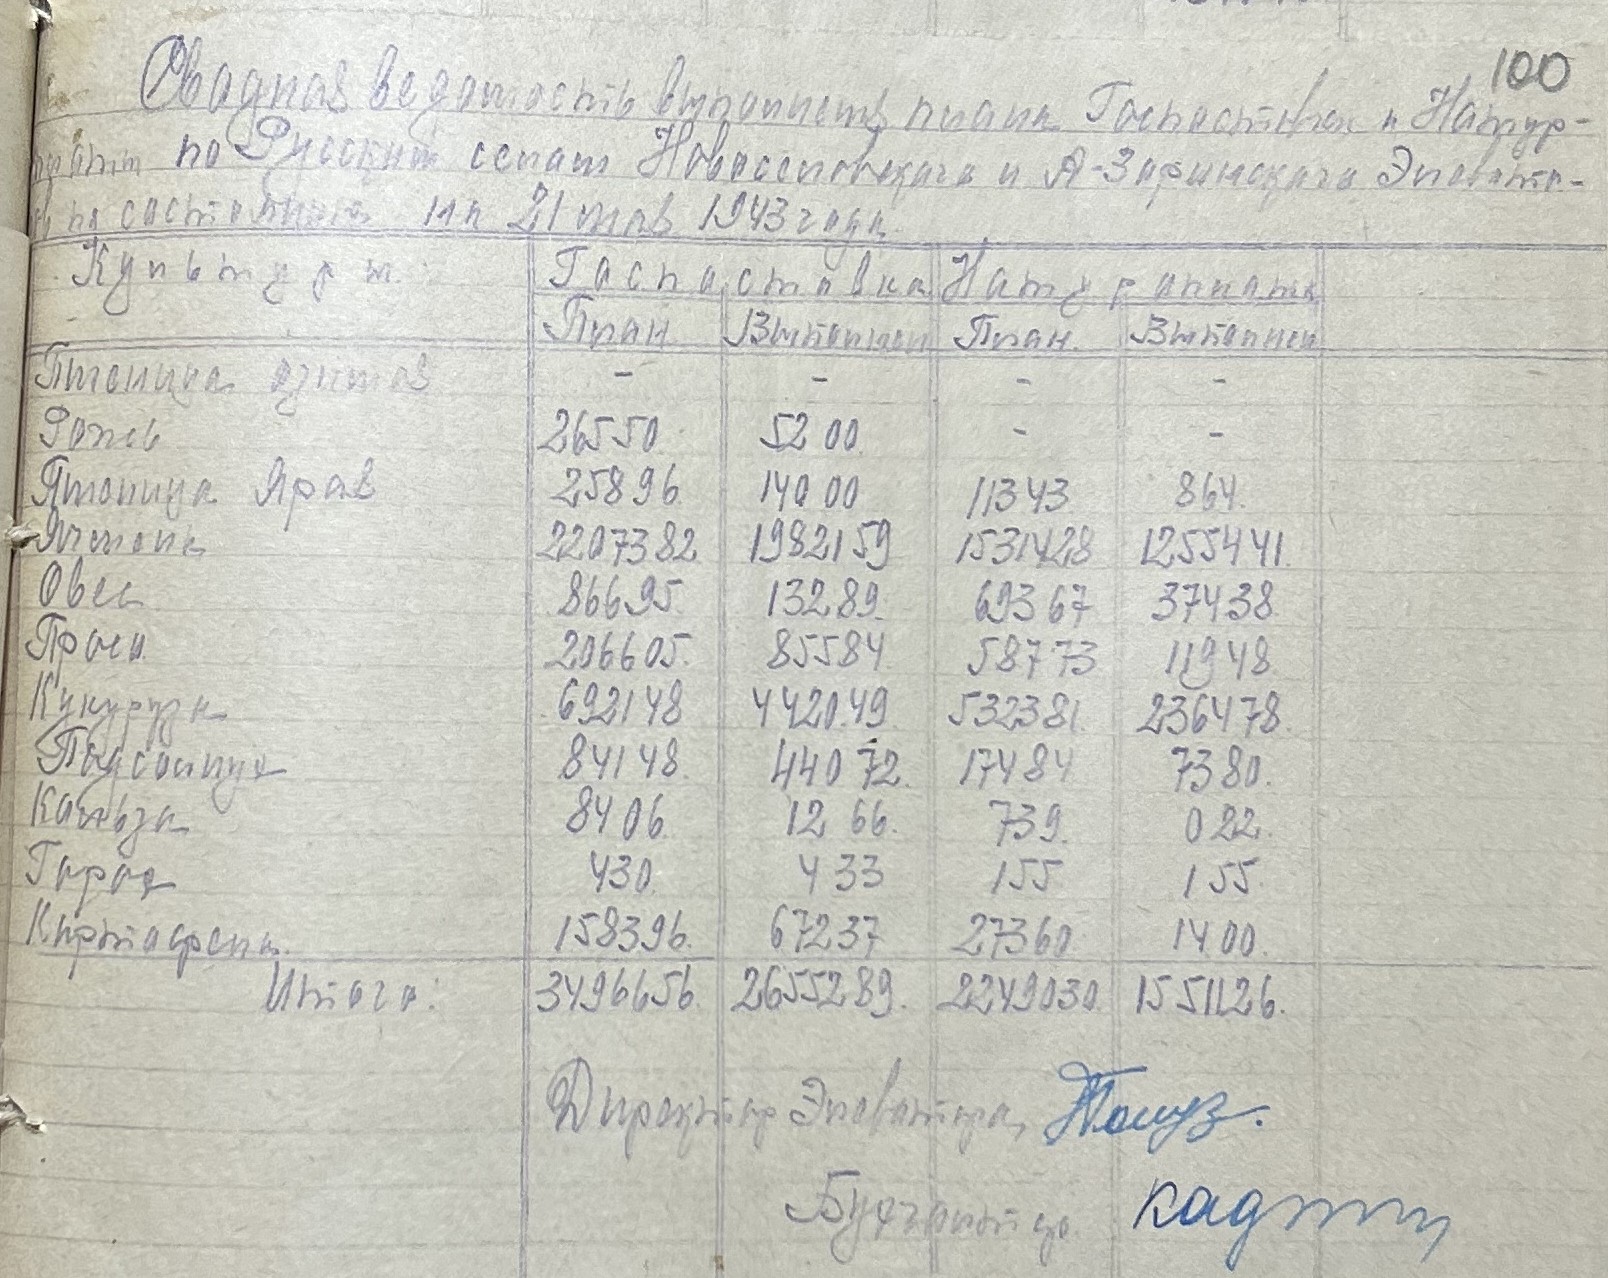 100
Сводная ведомость выполнения плана Госпоставки и Натур-
по Русским селам Новоселовского и А-Заринского Элевато-
по состоянию на 21 мая 1943 года.
Культуры. Госпоставка Натуроплата
План. Выполнен План. Выполнен
Пшеница озимая - - - -
Рожь 26550. 5200 - -
Пшеница Яров 25896 14000 11343 864.
Ячмень 2207382 1982159 1531428 1255441.
Овес 86695. 13289. 69367 37438
Просо 206605. 85584. 58773 11948
Кукуруза 692148 442049. 532381. 236478.
Подсолнух 84148. 44072. 17484 7380.
Кользa 8406. 1266. 739. 022.
Горох 430. 433 155 155.
158396. 67237 27360 1400.
Итого: 3496656. 2655289. 2249030. 1551126.
Директор Элеватора,
Бухгалтер.